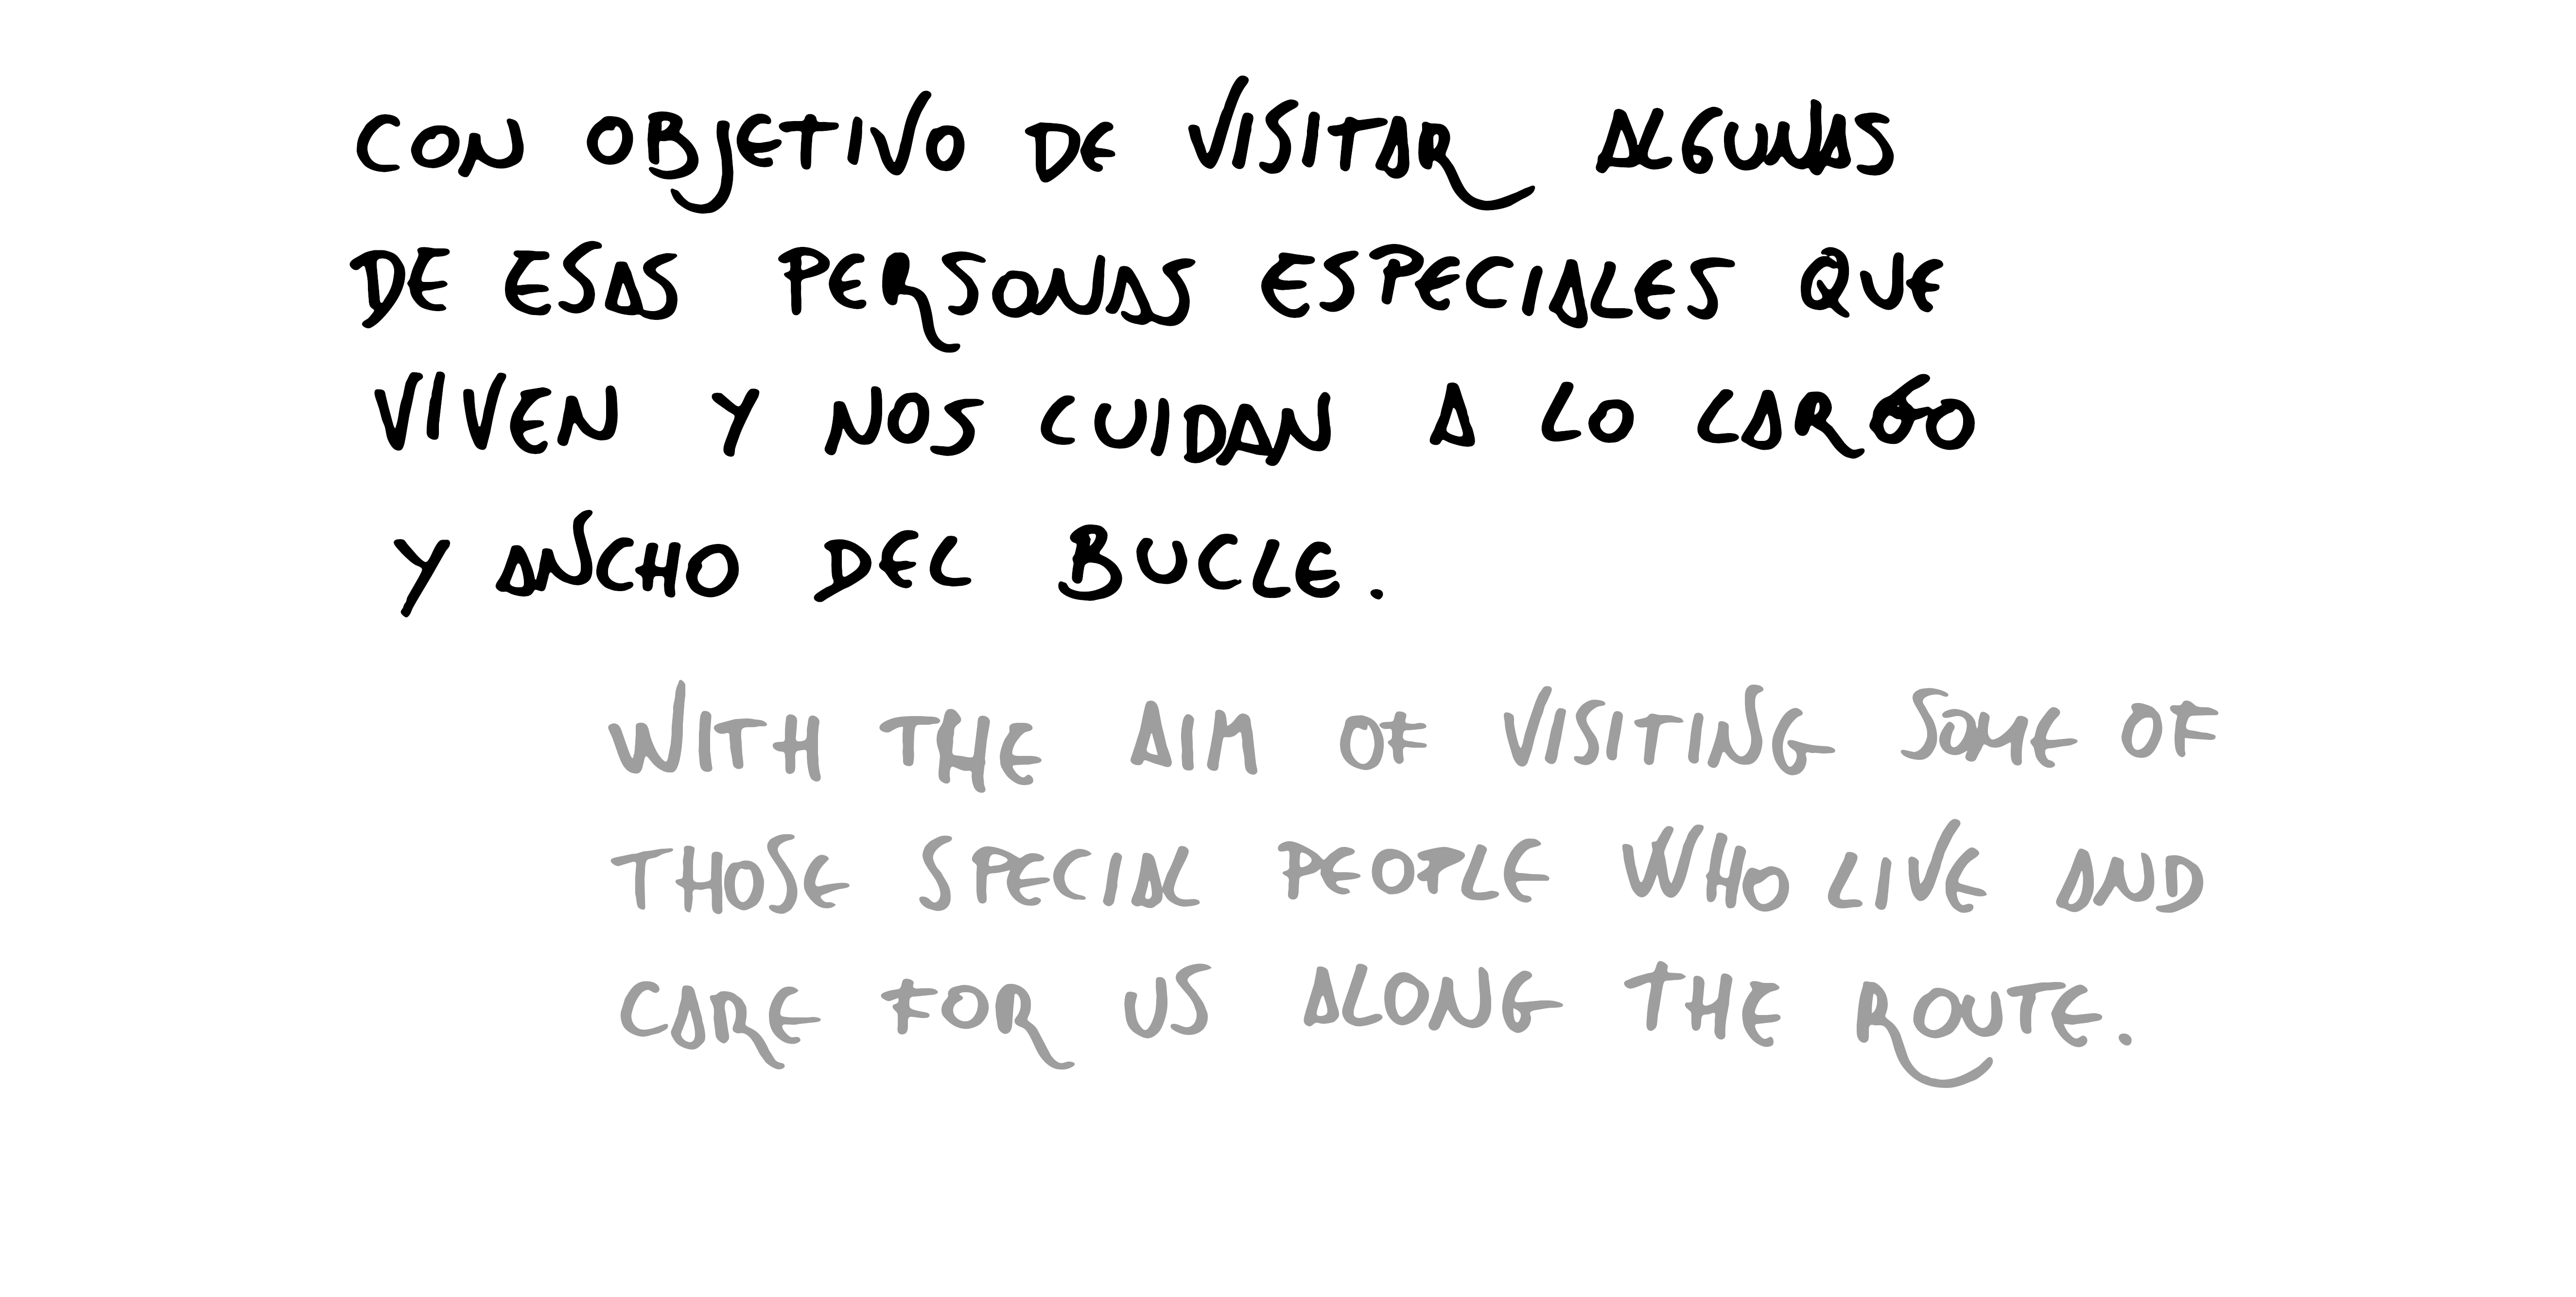 CON OBJETIVO DE VISITAR ALGUNAS
DE ESAS PERSONAS ESPECIALES QUE
VIVEN Y NOS CUIDAN A LO LARGO
Y ANCHO DEL BUCLE.
WITH THE AIM OF VISITING SOME OF
THOSE SPECIAL PEOPLE WHO LIVE AND
CARE FOR US ALONG THE ROUTE.